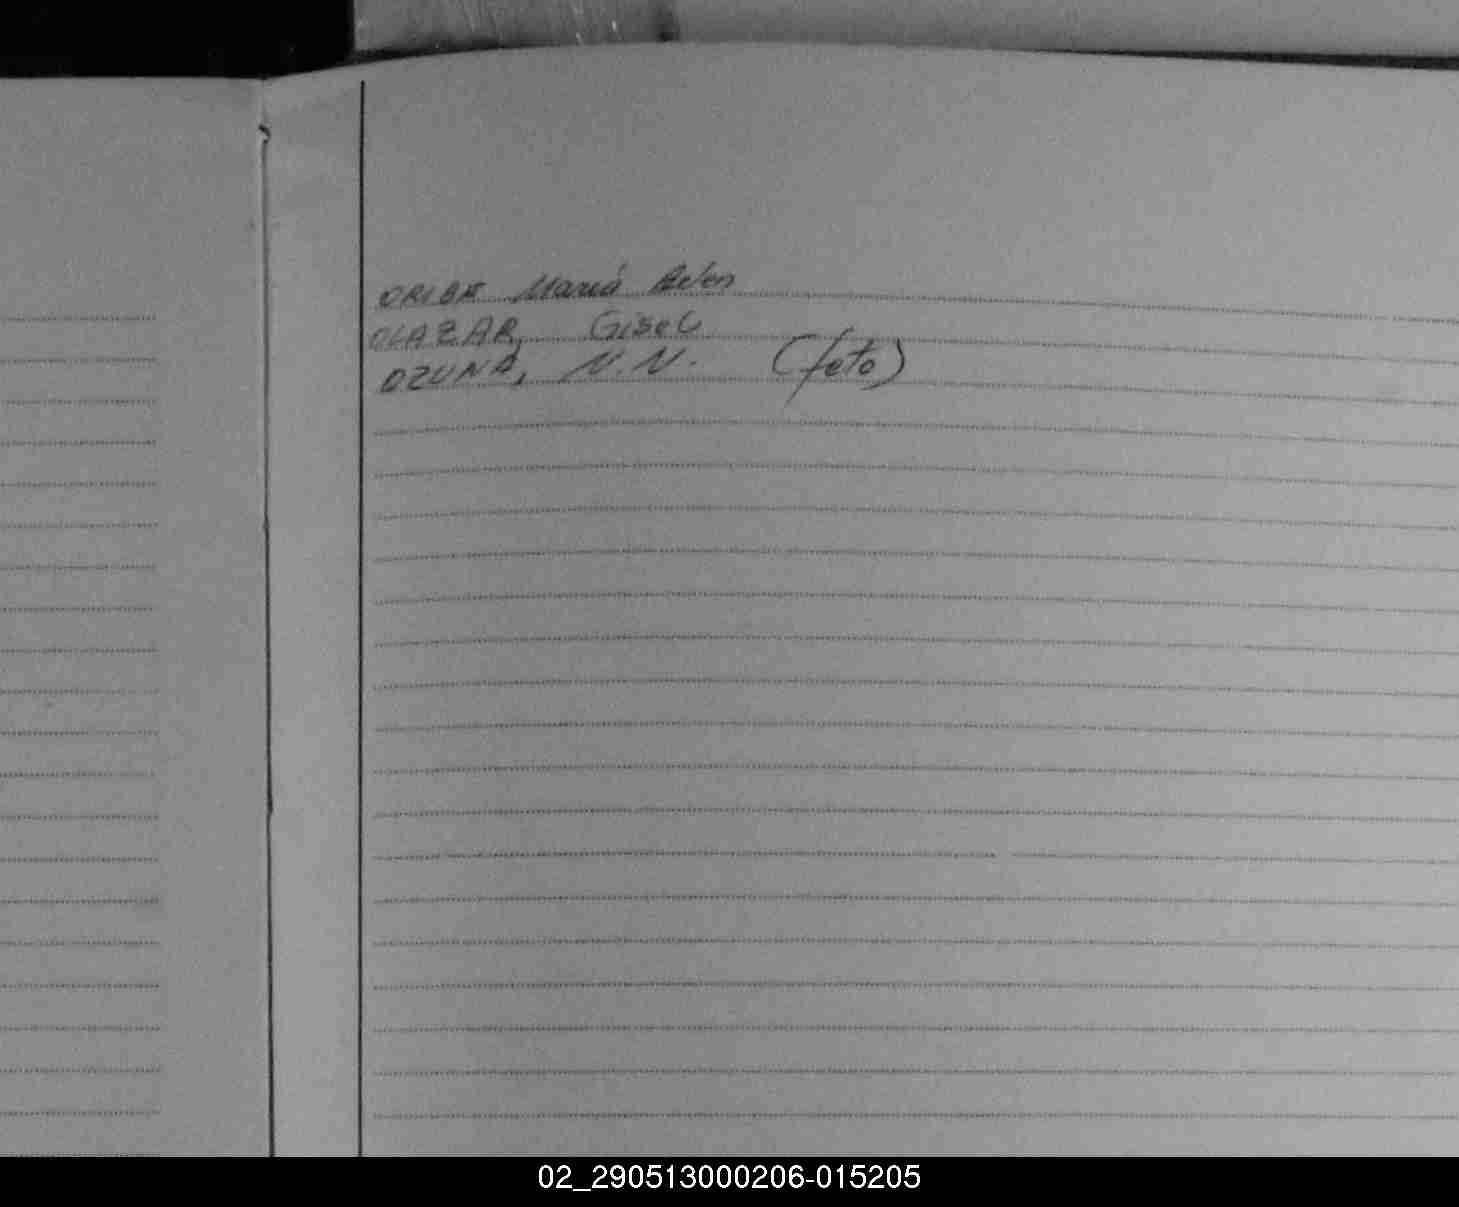 ORIBE María Belen
OLAZAR, Gisel
OZUNA, N.N. (feto)
02_290513000206-015205